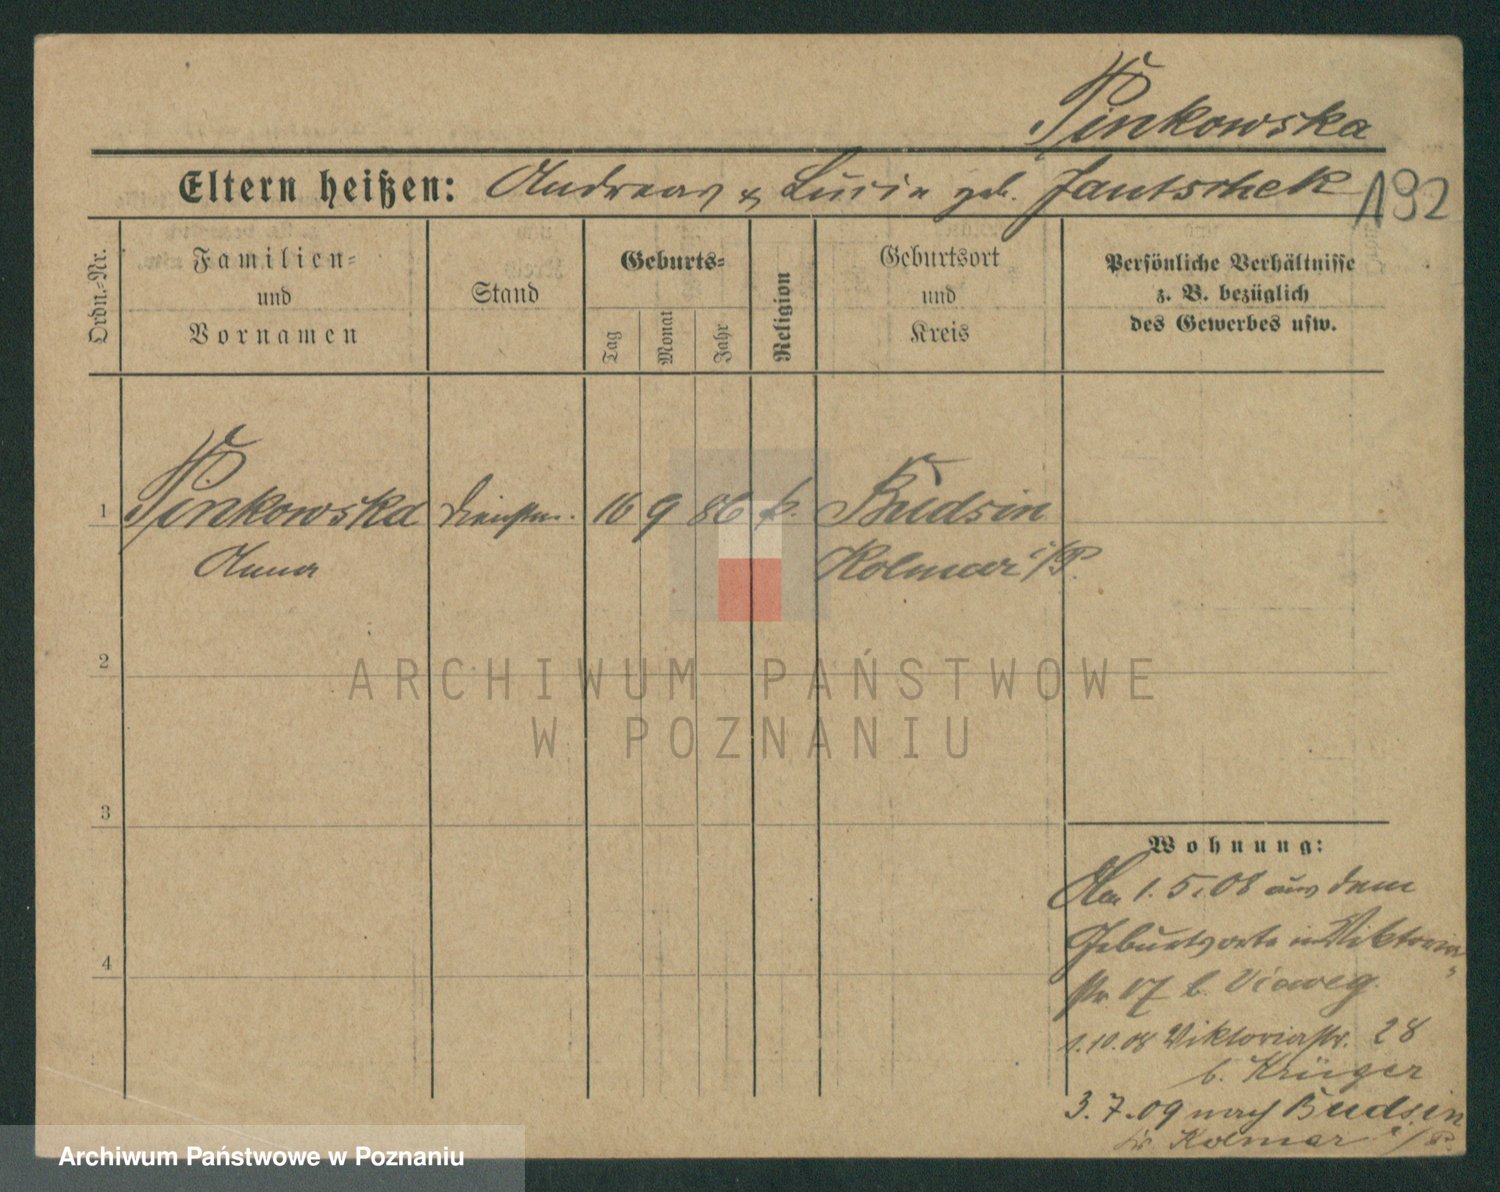 Pinkowska
Eltern heißen: Andreas & Lucie geb. Jantschek
192
Ordn.-Nr.
Familien-
und
Vornamen
Stand
Geburts-
Tag
Monat
Jahr
Religion
Geburtsort
und
Kreis
Persönliche Verhältnisse
z. B. bezüglich
des Gewerbes usw.
1 Pinkowska Dienstm. 16 9 86 k. Budsin
Anna Kolmar i/P.
2
3
4
Wohnung:
1.5.08 aus dem
Geburtsorte in Viktoria-
str 17 b. Vieweg.
1.10.08 Viktoriastr. 28
b. Krüger
3.7.09 nach Budsin
Kr Kolmar i/P.
ARCHIWUM PAŃSTWOWE
W POZNANIU
Archiwum Państwowe w Poznaniu